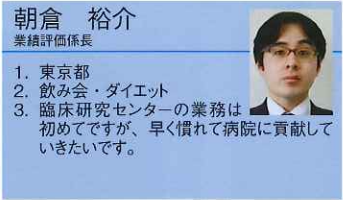 朝倉　裕介
業績評価係長
1. 東京都
2. 飲み会・ダイエット
3. 臨床研究センターの業務は
初めてですが、早く慣れて病院に貢献して
いきたいです。